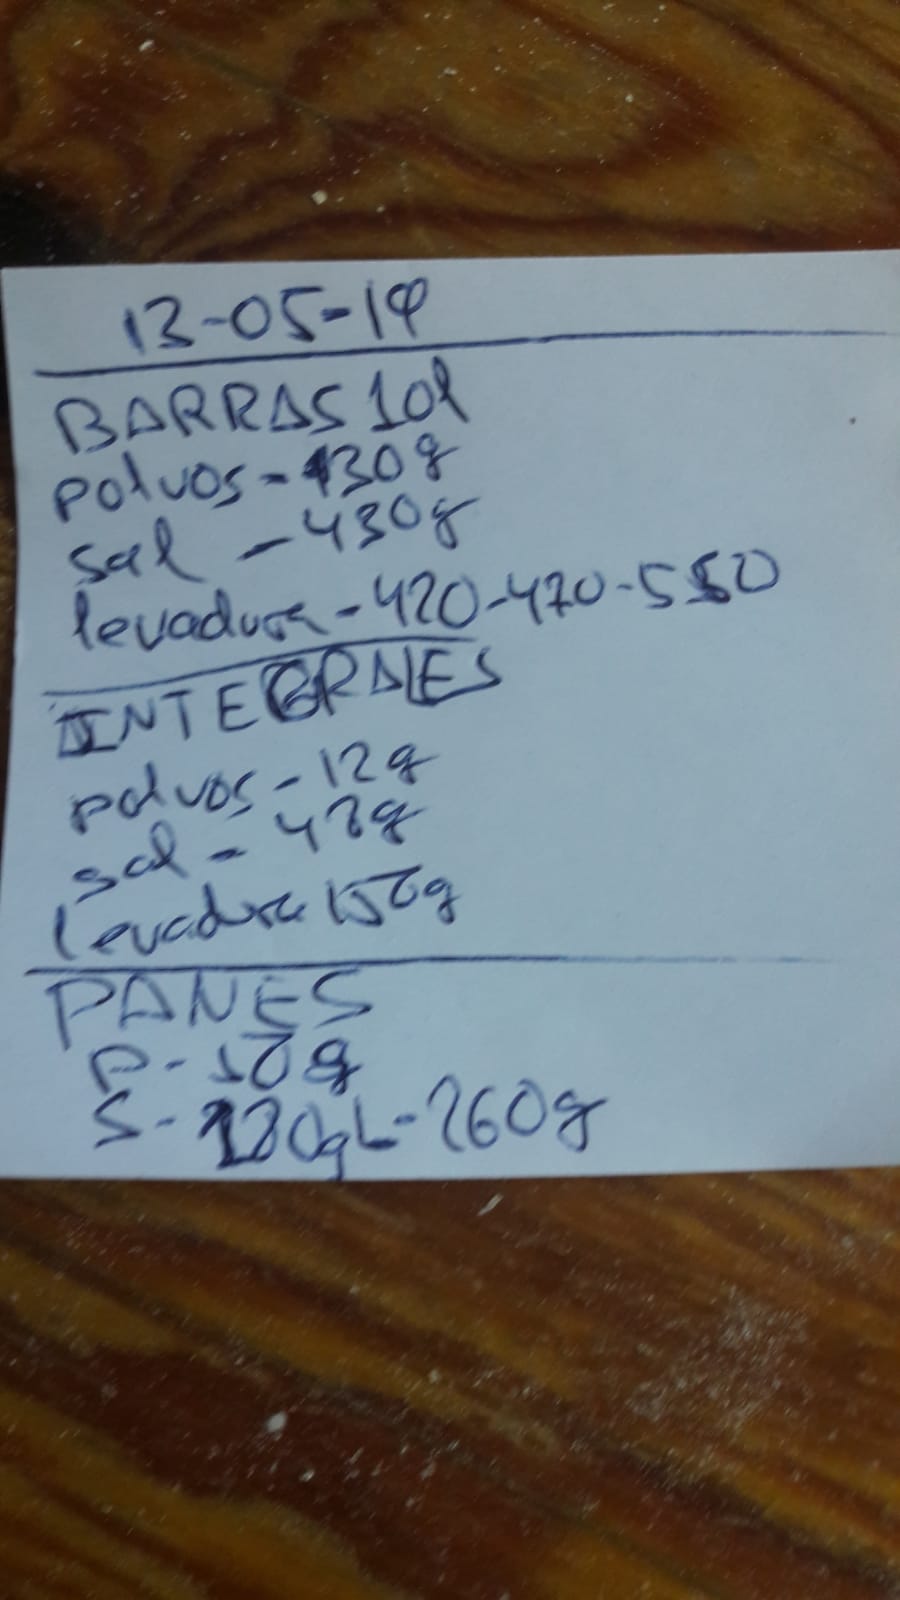 13-05-19
BARRAS 10l
polvos - 130g
sal - 430g
levadura - 420-470-550
INTEGRALES
polvos - 12g
sal - 42g
levadura 150g
PANES
P - 10g
S - 120g L - 260g